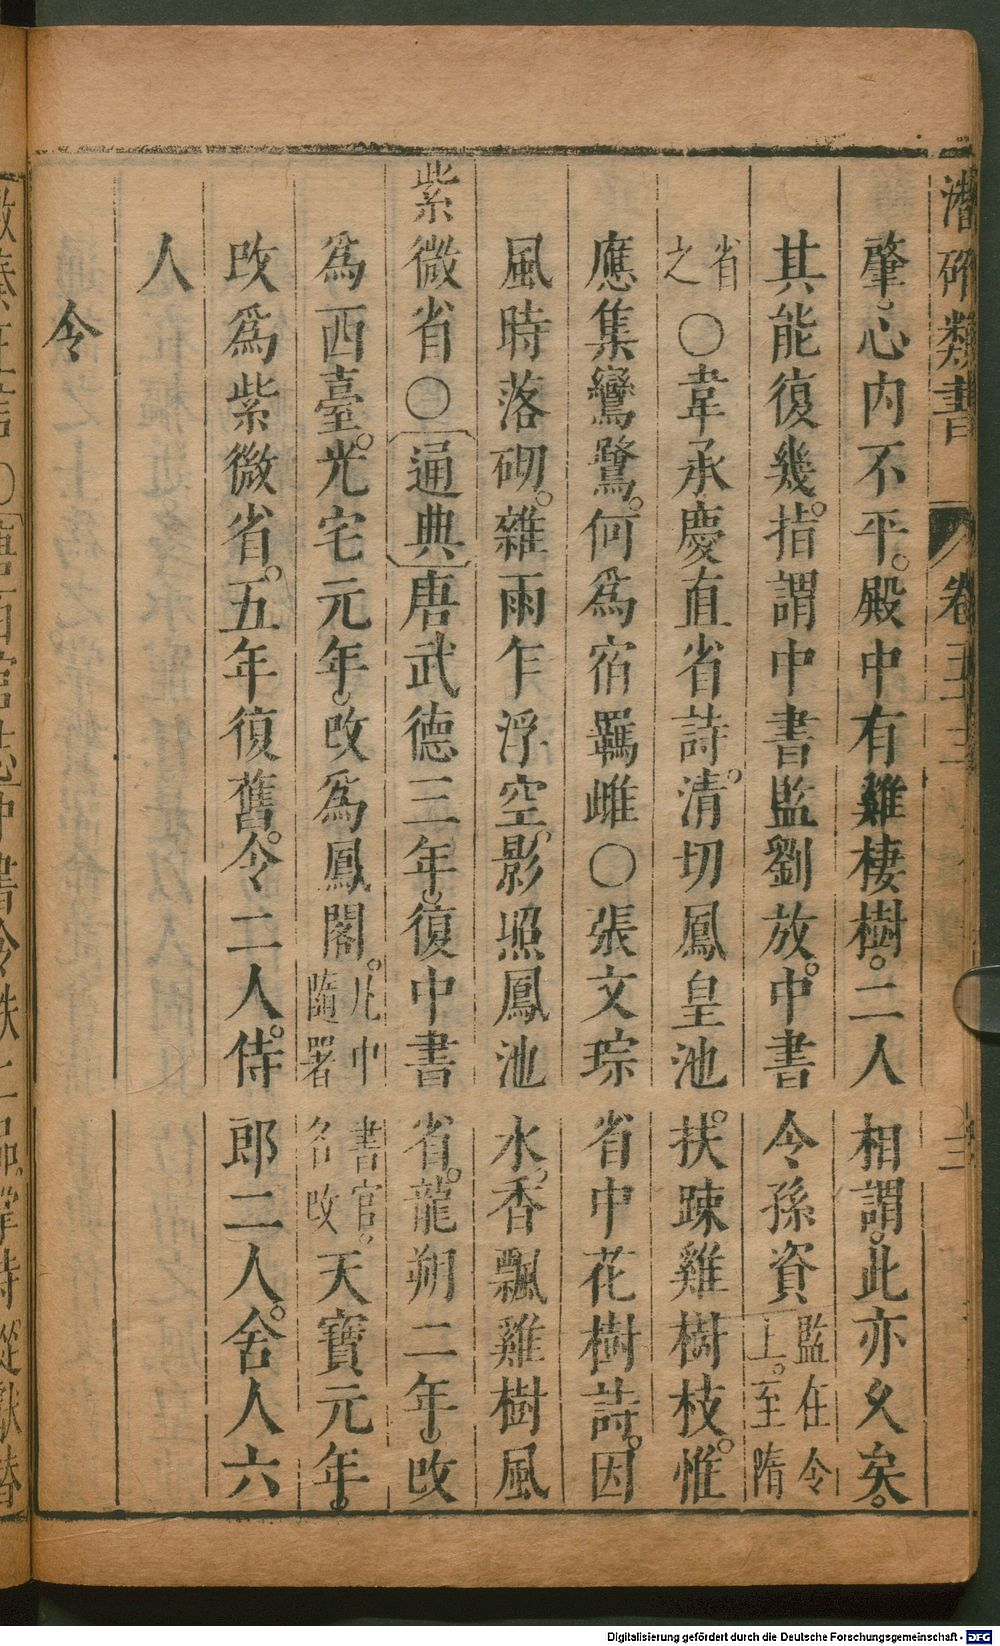 潛確類書 卷五十三 三
肇心內不平。殿中有雞棲樹。二人相謂。此亦久矣。
其能復幾。指謂中書監劉放。中書令孫資監在令上。至隋
省之○韋承慶直省詩。清切鳳皇池。扶踈雞樹枝。惟
應集鸞鷖。何為宿羈雌○張文琮省中花樹詩。因
風時落砌。雜雨乍浮空。影照鳳池水。香飄雞樹風
紫微省○通典唐武德三年。復中書省。龍朔二年。改
為西臺。光宅元年。改為鳳閣。凡中書官。隋署名改天寶元年。
改為紫微省。五年復舊。令二人。侍郎二人。舍人六
人
令
Digitalisierung gefördert durch die Deutsche Forschungsgemeinschaft - DFG